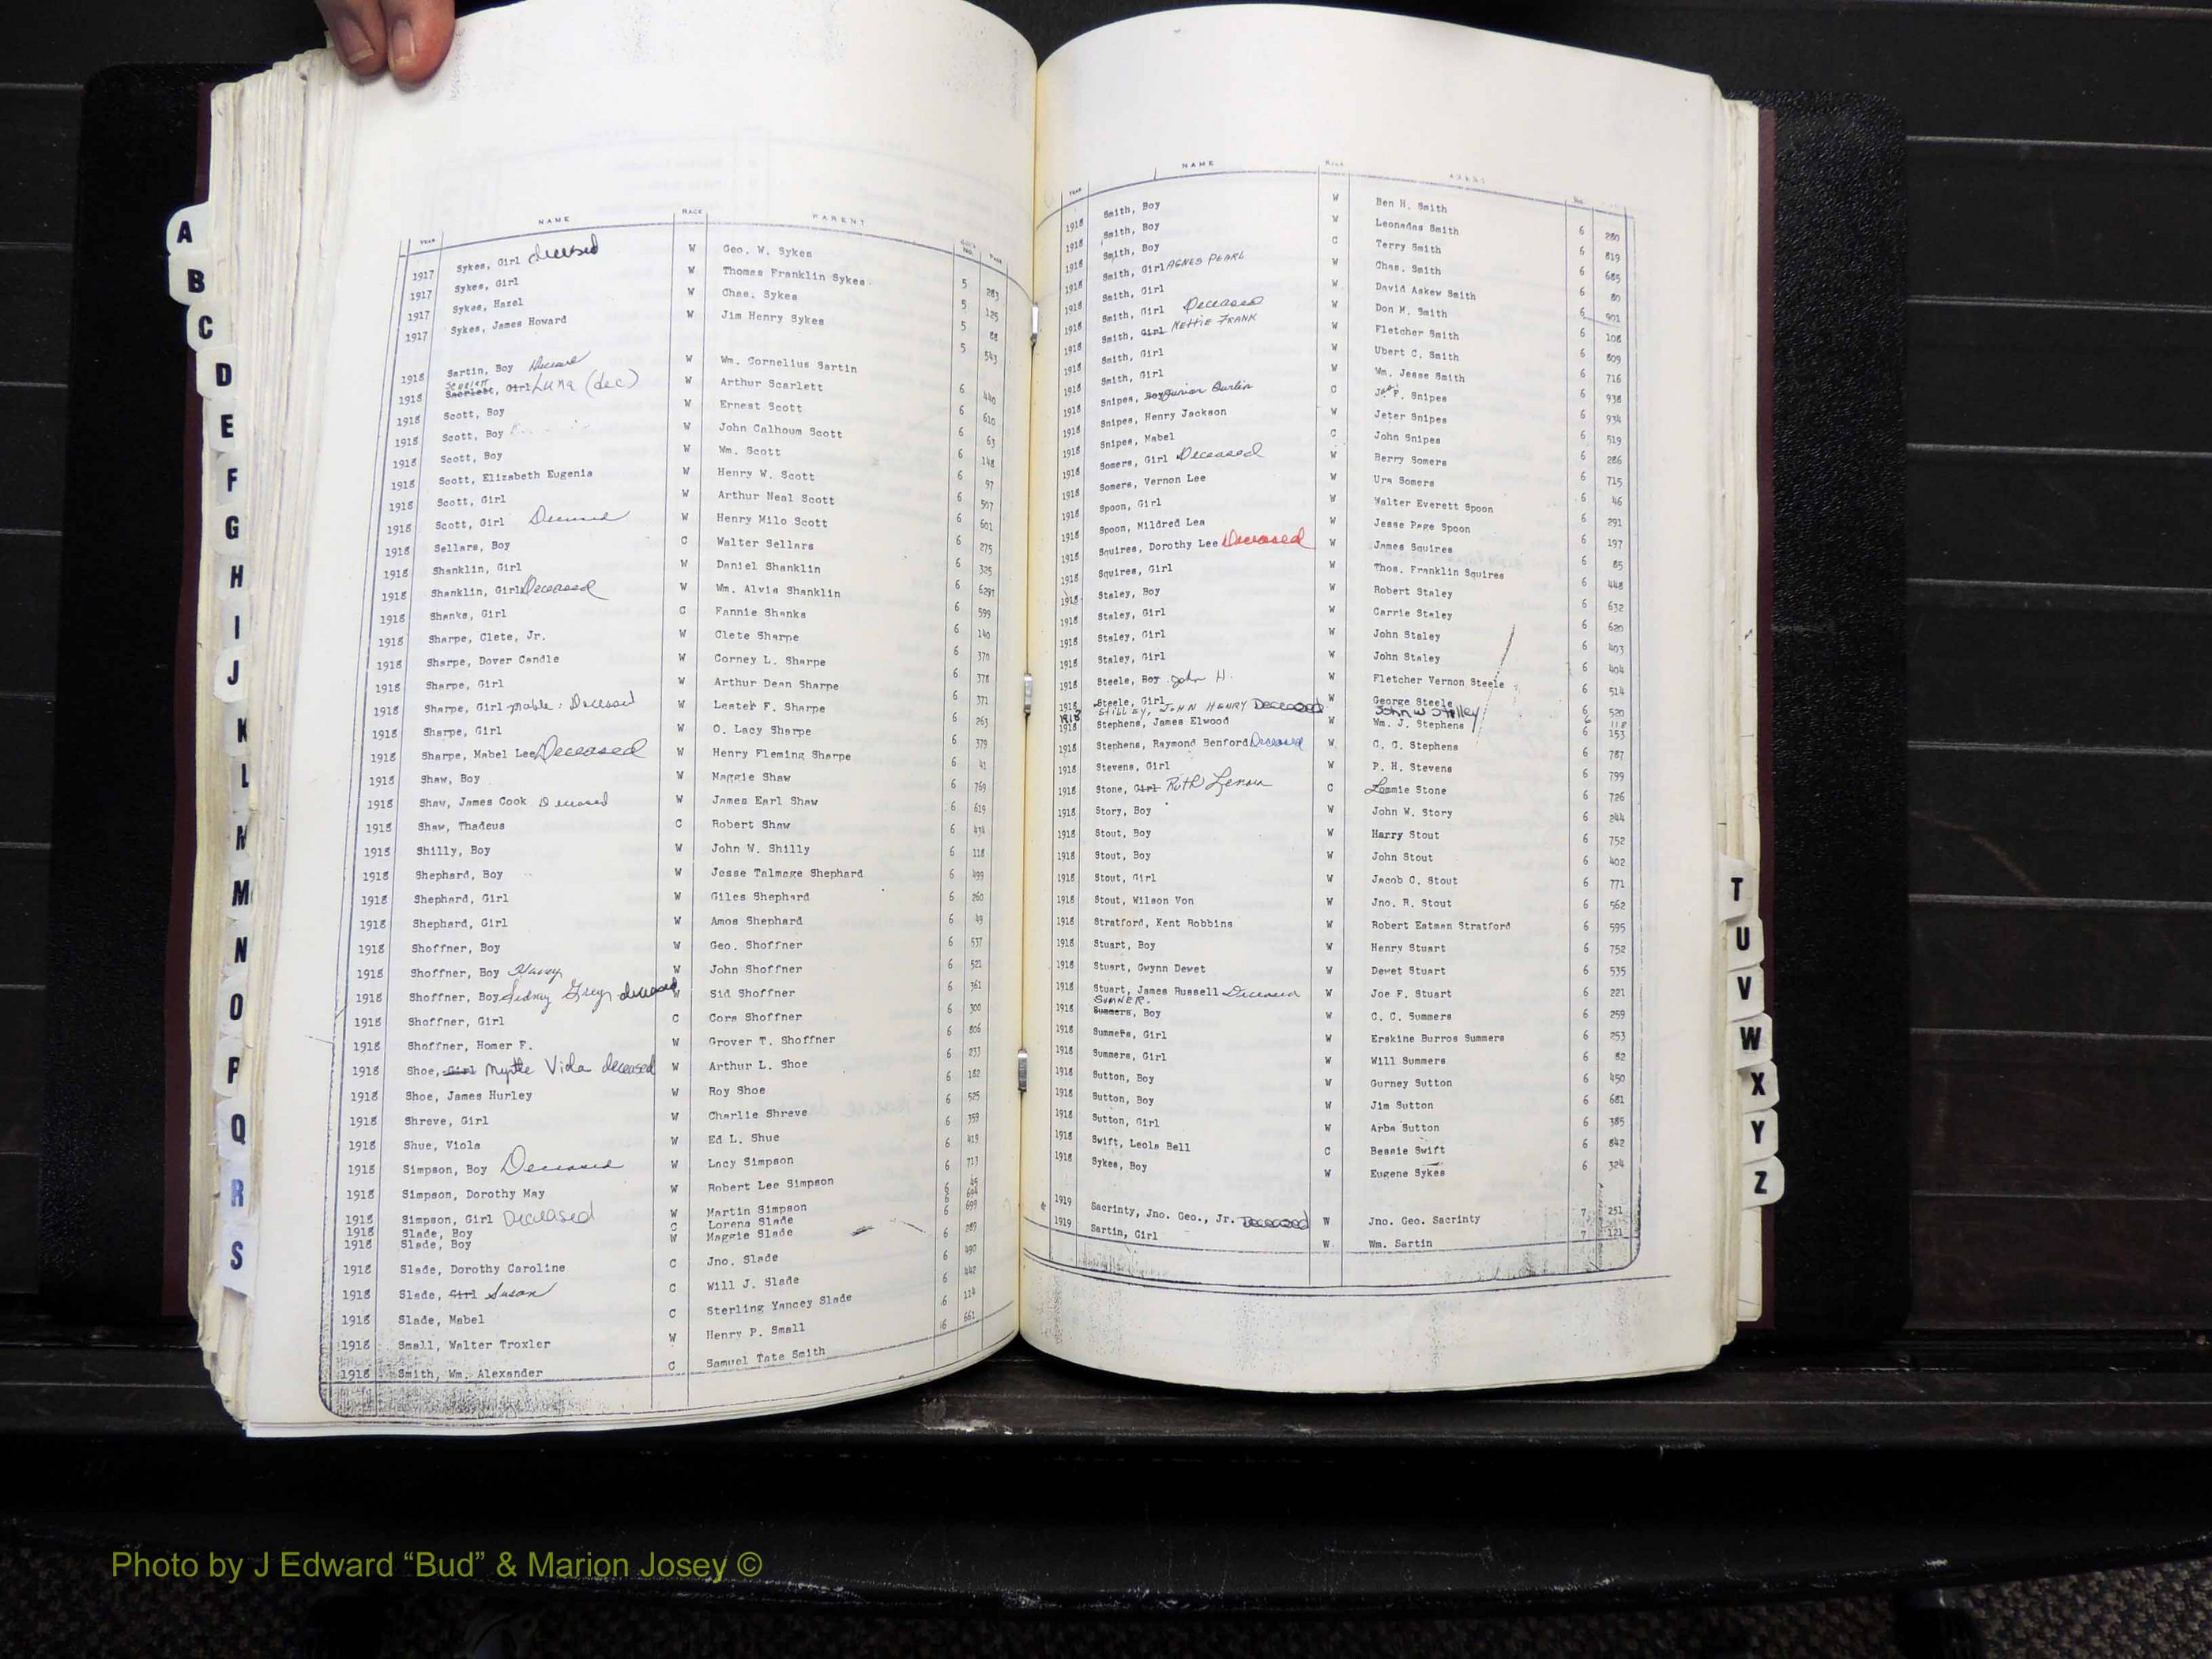 A
B
C
D
E
F
G
H
I
J
K
L
M
N
O
P
Q
R
S
YEAR NAME RACE PARENT
1917 Sykes, Girl deceased W Geo. W. Sykes 5 283
1917 Sykes, Girl W Thomas Franklin Sykes 5 125
1917 Sykes, Hazel W Chas. Sykes 5 88
1917 Sykes, James Howard W Jim Henry Sykes 5 543
1918 Sartin, Boy W Wm. Cornelius Sartin 6 440
1918 Scarlett, Girl Luna (dec) W Arthur Scarlett 6 610
1918 Scott, Boy W Ernest Scott 6 63
1918 Scott, Boy W John Calhoum Scott 6 148
1918 Scott, Boy W Wm. Scott 6 97
1918 Scott, Elizabeth Eugenia W Henry W. Scott 6 507
1918 Scott, Girl W Arthur Neal Scott 6 601
1918 Scott, Girl Deceased W Henry Milo Scott 6 275
1918 Sellars, Boy C Walter Sellars 6 325
1918 Shanklin, Girl W Daniel Shanklin 6
1918 Shanklin, Girl Deceased W Wm. Alvis Shanklin 6 599
1918 Shanks, Girl C Fannie Shanks 6 140
1918 Sharpe, Clete, Jr. W Clete Sharpe 6 370
1918 Sharpe, Dover Candle W Corney L. Sharpe 6 378
1918 Sharpe, Girl W Arthur Dean Sharpe 6 371
1918 Sharpe, Girl Mable: Deceased W Lester F. Sharpe 6 263
1918 Sharpe, Girl W O. Lacy Sharpe 6 379
1918 Sharpe, Mabel Lee Deceased W Henry Fleming Sharpe 6 41
1918 Shaw, Boy W Maggie Shaw 6 769
1918 Shaw, James Cook Deceased W James Earl Shaw 6 619
1918 Shaw, Thadeus C Robert Shaw 6 434
1918 Shilly, Boy W John W. Shilly 6 118
1918 Shephard, Boy W Jesse Talmage Shephard 6 499
1918 Shephard, Girl W Giles Shephard 6 260
1918 Shephard, Girl W Amos Shephard 6 49
1918 Shoffner, Boy W Geo. Shoffner 6 537
1918 Shoffner, Boy Harvey W John Shoffner 6 521
1918 Shoffner, Boy Sidney Greyn deceased W Sid Shoffner 6 361
1918 Shoffner, Girl C Cora Shoffner 6 300
1918 Shoffner, Homer F. W Grover T. Shoffner 6 806
1918 Shoe, Girl Myrtle Viola deceased W Arthur L. Shoe 6 233
1918 Shoe, James Hurley W Roy Shoe 6 182
1918 Shreve, Girl W Charlie Shreve 6 525
1918 Shue, Viola W Ed L. Shue 6 359
1918 Simpson, Boy Deceased W Lacy Simpson 6 419
1918 Simpson, Dorothy May W Robert Lee Simpson 6 713
1918 Simpson, Girl Deceased W Martin Simpson 6 45
1918 Slade, Boy C Lorena Slade 6 694
1918 Slade, Boy W Maggie Slade 6 699
1918 Slade, Dorothy Caroline C Jno. Slade 6 289
1918 Slade, Girl Susan C Will J. Slade 6 490
1918 Slade, Mabel C Sterling Yancey Slade 6 442
1918 Small, Walter Troxler W Henry P. Small 6 114
1918 Smith, Wm. Alexander C Samuel Tate Smith 6 661
YEAR NAME
1918 Smith, Boy W Ben H. Smith 6 280
1918 Smith, Boy W Leonadas Smith 6 819
1918 Smith, Boy C Terry Smith 6 685
1918 Smith, Girl AGNES PEARL W Chas. Smith 6 80
1918 Smith, Girl W David Askew Smith 6 901
1918 Smith, Girl Deceased W Don M. Smith 6 108
1918 Smith, Girl NETTIE FRANK W Fletcher Smith 6 809
1918 Smith, Girl W Ubert C. Smith 6 716
1918 Smith, Girl W Wm. Jesse Smith 6 938
1918 Snipes, Boy Junior Durlin C F. Snipes 6 934
1918 Snipes, Henry Jackson W Jeter Snipes 6 519
1918 Snipes, Mabel C John Snipes 6 286
1918 Somers, Girl Deceased W Berry Somers 6 715
1918 Somers, Vernon Lee W Ura Somers 6 46
1918 Spoon, Girl W Walter Everett Spoon 6 291
1918 Spoon, Mildred Lea W Jesse Page Spoon 6 197
1918 Squires, Dorothy Lee Deceased W James Squires 6 85
1918 Squires, Girl W Thos. Franklin Squires 6 448
1918 Staley, Boy W Robert Staley 6 632
1918 Staley, Girl W Carrie Staley 6 620
1918 Staley, Girl W John Staley 6 403
1918 Staley, Girl W John Staley 6 404
1918 Steele, Boy John H. W Fletcher Vernon Steele 6 514
1918 Steele, Girl W George Steele 6 520
1918 STILLEY, JOHN HENRY Deceased John W Stilley 6 118
1918 Stephens, James Elwood W Wm. J. Stephens 6 153
1918 Stephens, Raymond Benford Deceased W C. C. Stephens 6 787
1918 Stevens, Girl W P. H. Stevens 6 799
1918 Stone, Girl Ruth Lenora C Lommie Stone 6 726
1918 Story, Boy W John W. Story 6 244
1918 Stout, Boy W Harry Stout 6 752
1918 Stout, Boy W John Stout 6 402
1918 Stout, Girl W Jacob C. Stout 6 771
1918 Stout, Wilson Von W Jno. R. Stout 6 562
1918 Stratford, Kent Robbins W Robert Eatman Stratford 6 595
1918 Stuart, Boy W Henry Stuart 6 752
1918 Stuart, Gwynn Dewet W Dewet Stuart 6 535
1918 Stuart, James Russell Deceased W Joe F. Stuart 6 221
SUMNER.
1918 Summers, Boy W C. C. Summers 6 259
1918 Summers, Girl W Erskine Burros Summers 6 253
1918 Summers, Girl W Will Summers 6 82
1918 Sutton, Boy W Gurney Sutton 6 450
1918 Sutton, Boy W Jim Sutton 6 681
1918 Sutton, Girl W Arba Sutton 6 385
1918 Swift, Leola Bell C Bessie Swift 6 842
1918 Sykes, Boy W Eugene Sykes 6 324
1919 Sacrinty, Jno. Geo., Jr. Deceased W Jno. Geo. Sacrinty 7 251
1919 Sartin, Girl W Wm. Sartin 7 121
T
U
V
W
X
Y
Z
Photo by J Edward “Bud” & Marion Josey ©